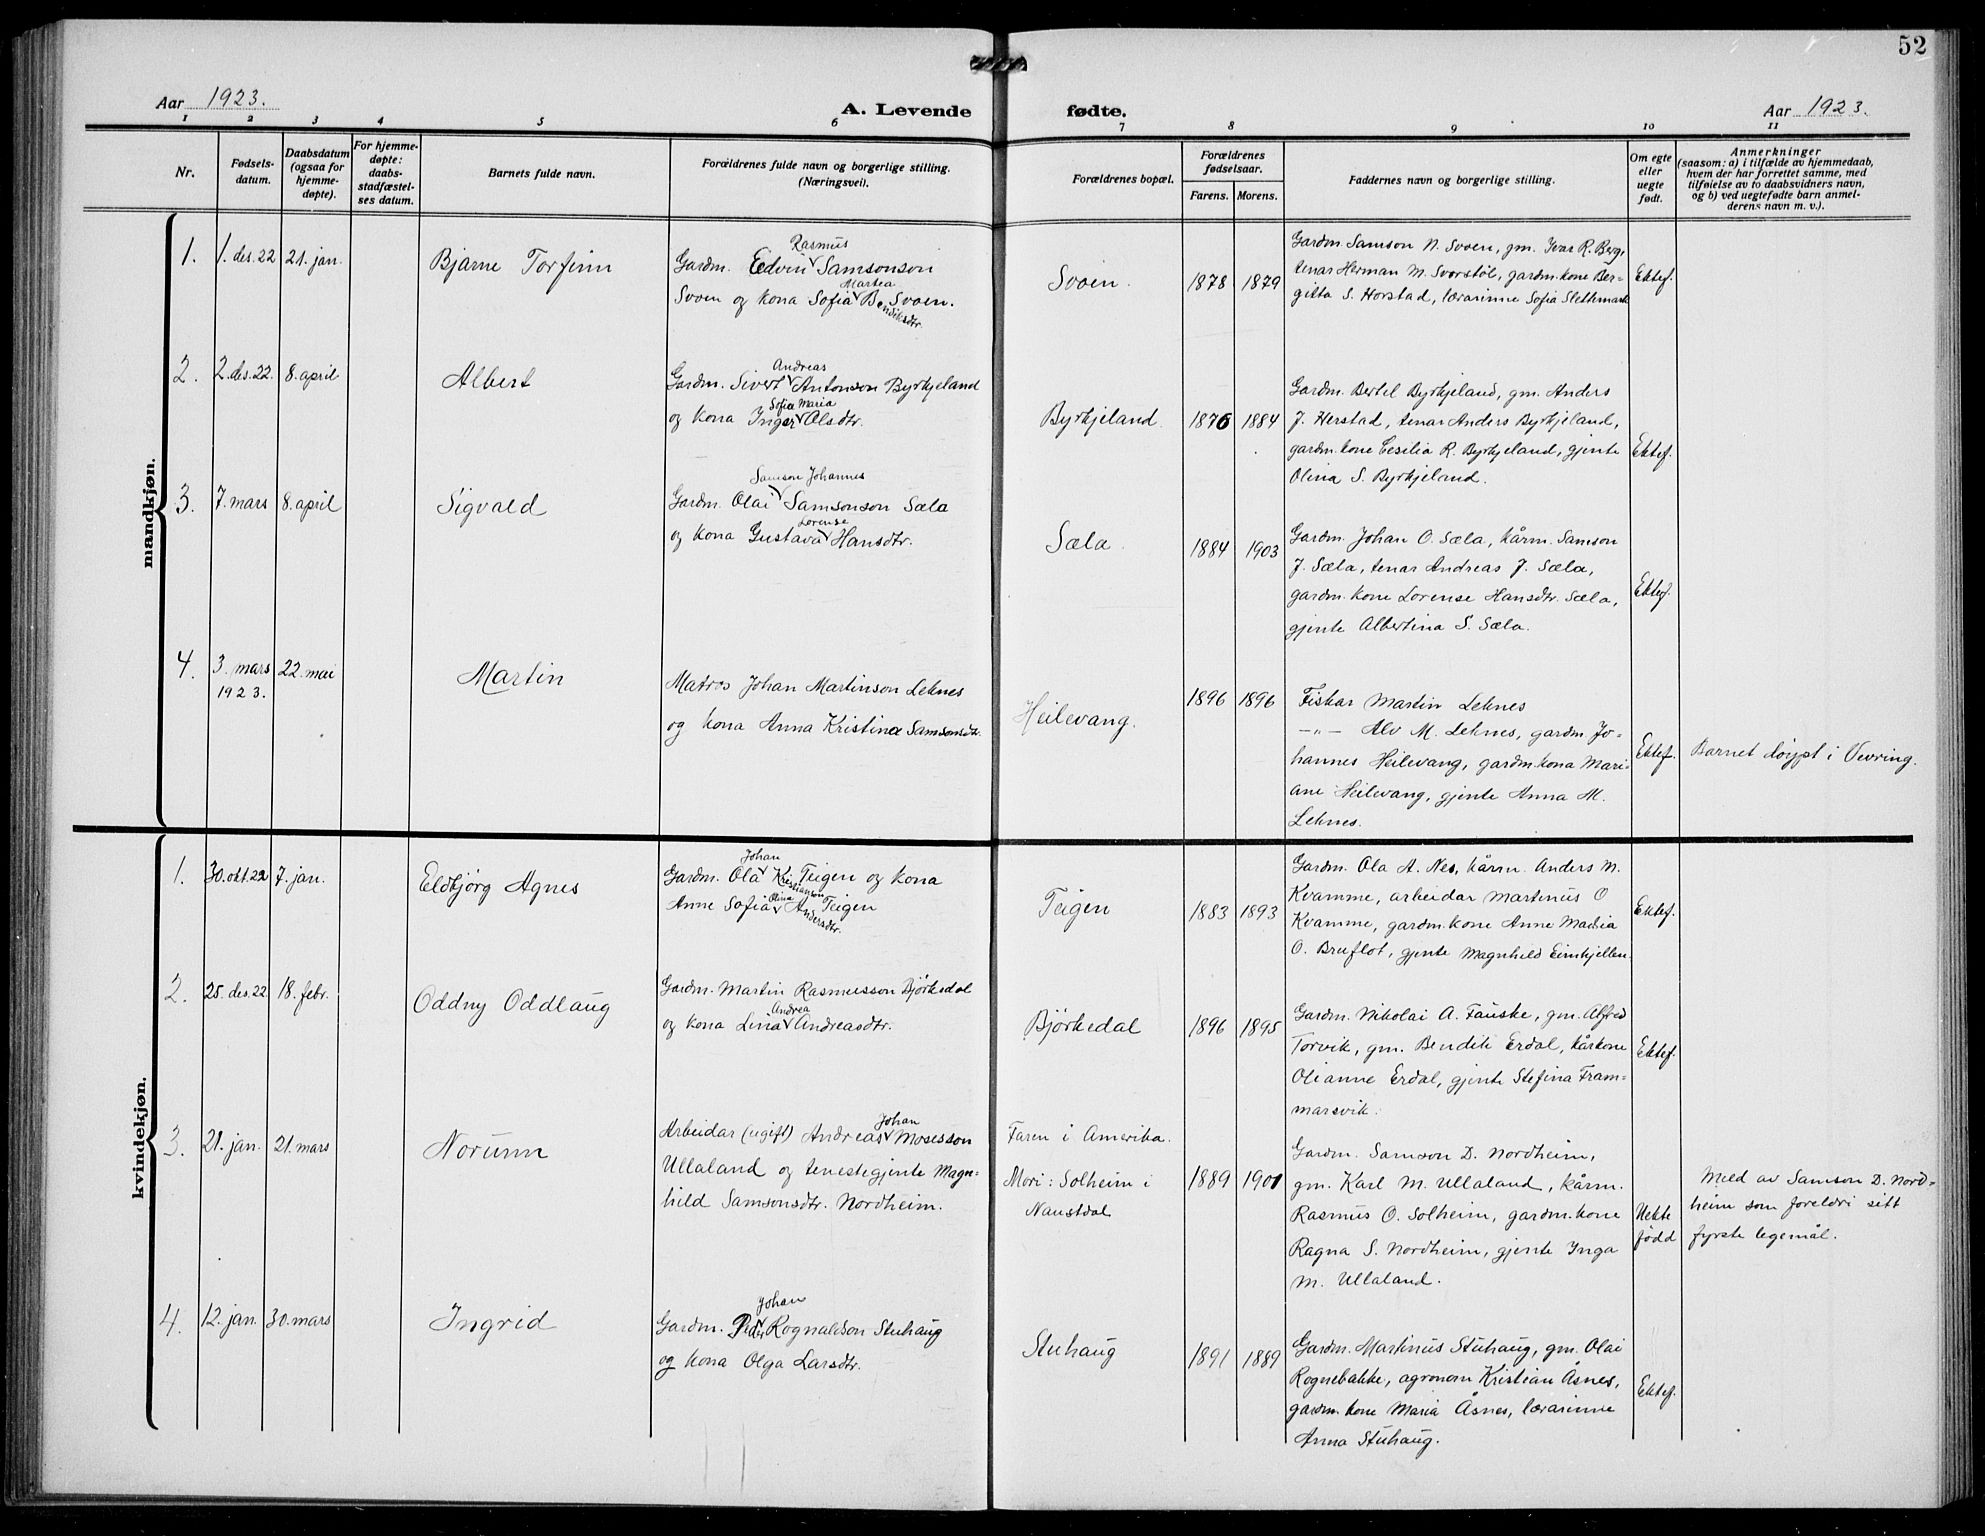 52
Aar 1923.
A. Levende fødte.
Aar 1923.
1 2 3 4 5 6 7 8 9 10 11
Nr.
Fødsels-
datum.
Daabsdatum
(ogsaa for
hjemme-
døpte).
For hjemme-
døpte:
daabs-
stadfæstel-
ses datum.
Barnets fulde navn.
Forældrenes fulde navn og borgerlige stilling.
(Næringsvei).
Forældrenes bopæl.
Forældrenes
fødselsaar.
Farens. Morens.
Faddernes navn og borgerlige stilling.
Om egte
eller
uegte
født.
Anmerkninger
(saasom: a) i tilfælde av hjemmedaab,
hvem der har forrettet samme, med
tilføielse av to daabsvidners navn,
og b) ved uegtefødte barn anmel-
derens navn m. v.).
mandkjøn.
1. 1. des. 22 21. jan. Bjarne Torfinn
Rasmus
Gardm. Edvin Samsonson
Martea
Svoen og kona Sofia Bendiksdtr. Svoen.
Svoen. 1878 1879
Gardm. Samson N. Svoen, gm. Ivar R. Berg,
tenar Herman M. Svorstøl, gardm. kone Ber-
gitta S. Horstad, lærarinne Sofia Slethmark
Ektef.
2. 2. des. 22. 8. april Albert
Andreas
Gardm. Sivert Antonson Byrkjeland
Sofia Maria
og kona Inger Olsdtr.
Byrkjeland. 1876 1884
Gardm. Bertel Byrkjeland, gm. Anders
J. Herstad, tenar Anders Byrkjeland,
gardm. kone Cesilia R. Byrkjeland, gjente
Olina S. Byrkjeland.
Ektef.
3. 7. mars 8. april Sigvald
Samson Johannes
Gardm. Olai Samsonson Sæla
Lorense
og kona Gustava Hansdtr.
Sæla. 1884 1903
Gardm. Johan O. Sæla, kårm. Samson
J. Sæla, tenar Andreas J. Sæla,
gardm. kone Lorense Hansdtr. Sæla,
gjente Albertina S. Sæla.
Ektef.
4. 3. mars 1923. 22. mai Martin
Matros Johan Martinson Leknes
og kona Anna Kristina Samsonsdtr.
Heilevang. 1896 1896
Fiskar Martin Leknes
-"- Alv M. Leknes, gardm. Jo-
hannes Heilevang, gardm. kona Mari-
ane Heilevang, gjente Anna M.
Leknes.
Ektef. Barnet døypt i Vevring.
kvindekjøn.
1. 30. okt. 22 7. jan. Eldbjørg Agnes
Johan
Gardm. Ola Kristianson Teigen og kona
Olina
Anne Sofia Andersdtr. Teigen
Teigen 1883 1893
Gardm. Ola A. Nes, kårm. Anders M.
Kvamme, arbeidar Martinus O
Kvamme, gardm. kone Anne Maria
O. Bruflot, gjente Magnhild Eimhjellen.
Ektef.
2. 25. des. 22. 18. febr. Oddny Oddlaug
Gardm. Martin Rasmusson Bjørkedal
Andrea
og kona Lina Andreasdtr.
Bjørkedal 1896 1895
Gardm. Nikolai A. Fauske, gm. Alfred
Torvik, gm. Bendik Erdal, kårkone
Olianne Erdal, gjente Stefina Fram-
marsvik.
Ektef.
3. 21. jan. 21. mars Norunn
Johan
Arbeidar (ugift) Andreas Mosesson
Ullaland og tenestegjente Magn-
hild Samsonsdtr. Nordheim.
Faren i Amerika.
Mori: Solheim i
Naustdal
1889 1901
Gardm. Samson D. Nordheim,
gm. Karl M. Ullaland, kårm.
Rasmus O. Solheim, gardm. kone
Ragna S. Nordheim, gjente Inga
M. Ullaland.
Uekte
fødd
Meld av Samson D. Nord-
heim som foreldri sitt
fyrste legemål.
4. 12. jan. 30. mars Ingrid
Johan
Gardm. Peder Rognaldson Stuhaug
og kona Olga Larsdtr.
Stuhaug 1891 1889
Gardm. Martinus Stuhaug, gm. Olai
Rognebakke, agronom Kristian Åsnes,
gardm. kone Maria Åsnes, lærarinne
Anna Stuhaug.
Ektef.